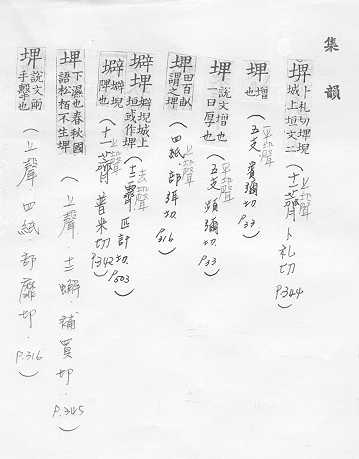 集韻
堺 卜札切埤堄城上垣文二（十一薺 上聲 卜礼切 P.344）
埤 增也（五支 平聲 賓彌切 P.33）
埤 說文增也一曰厚也（五支 平聲 頻彌切 P.33）
埤 田百畝謂之埤（四紙 上聲 部弭切 P.316）
壀埤 壀堄城上垣或作埤（十二霽 去聲 匹計切 P.503）
壀 壀堄障也（十一薺 上聲 普米切 P.342）
埤 下濕也春秋國語松柏不生埤（上聲．十二蟹 補買切．P.345）
說文兩手擊也（上聲 四紙 部靡切．P.316）